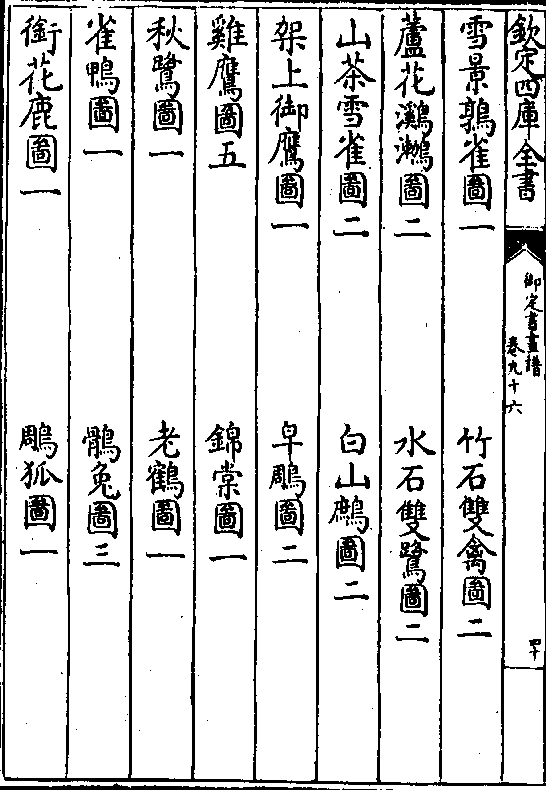 欽定四庫全書
御定書畫譜
卷九十六
四十
雪景鶉雀圖一　竹石雙禽圖二
蘆花鸂鶒圖二　水石雙鷺圖二
山茶雪雀圖二　白山鷓圖二
架上御鷹圖一　皁鵰圖二
雞鷹圖五　錦棠圖一
秋鷺圖一　老鶴圖一
雀鴨圖一　鶻兔圖三
銜花鹿圖一　鵰狐圖一